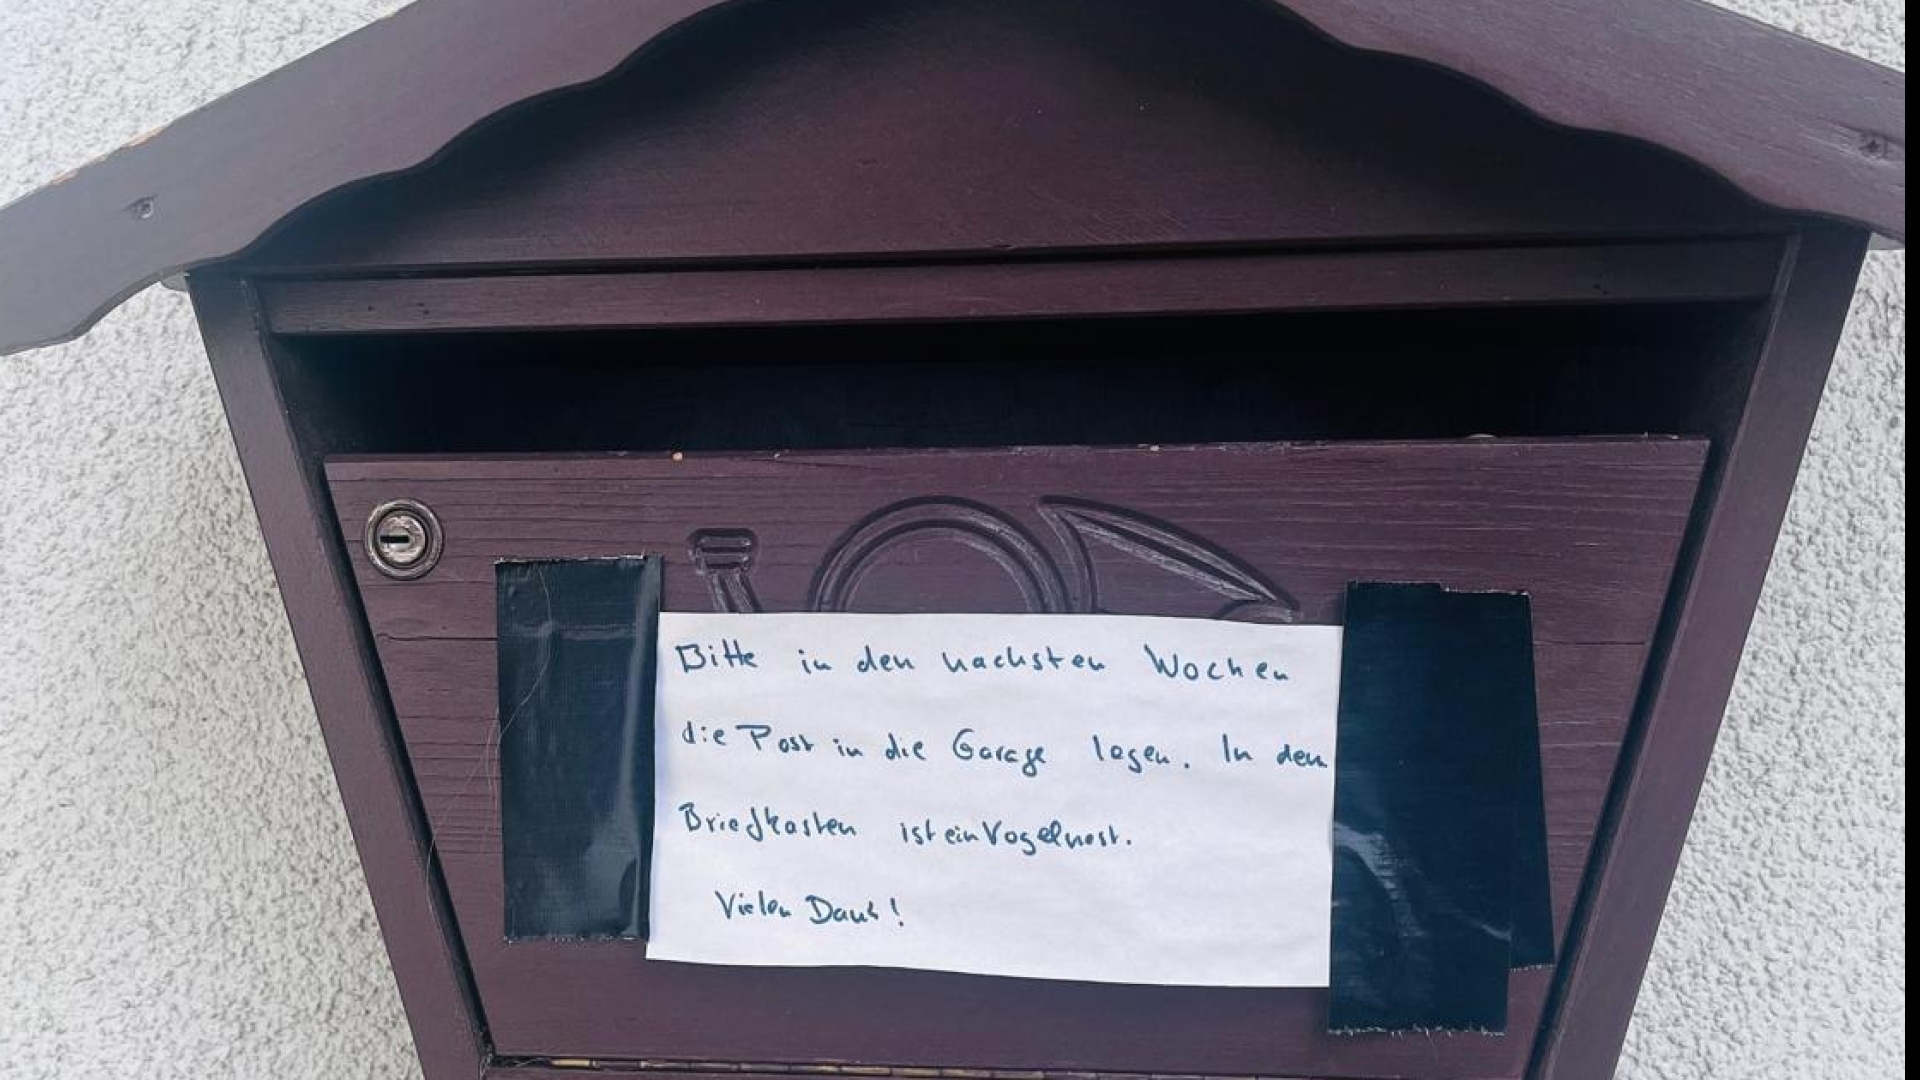 Bitte in den nachsten Wochen
die Post in die Garage legen. In dem
Briefkasten ist ein Vogelnest.
Vielen Dank!